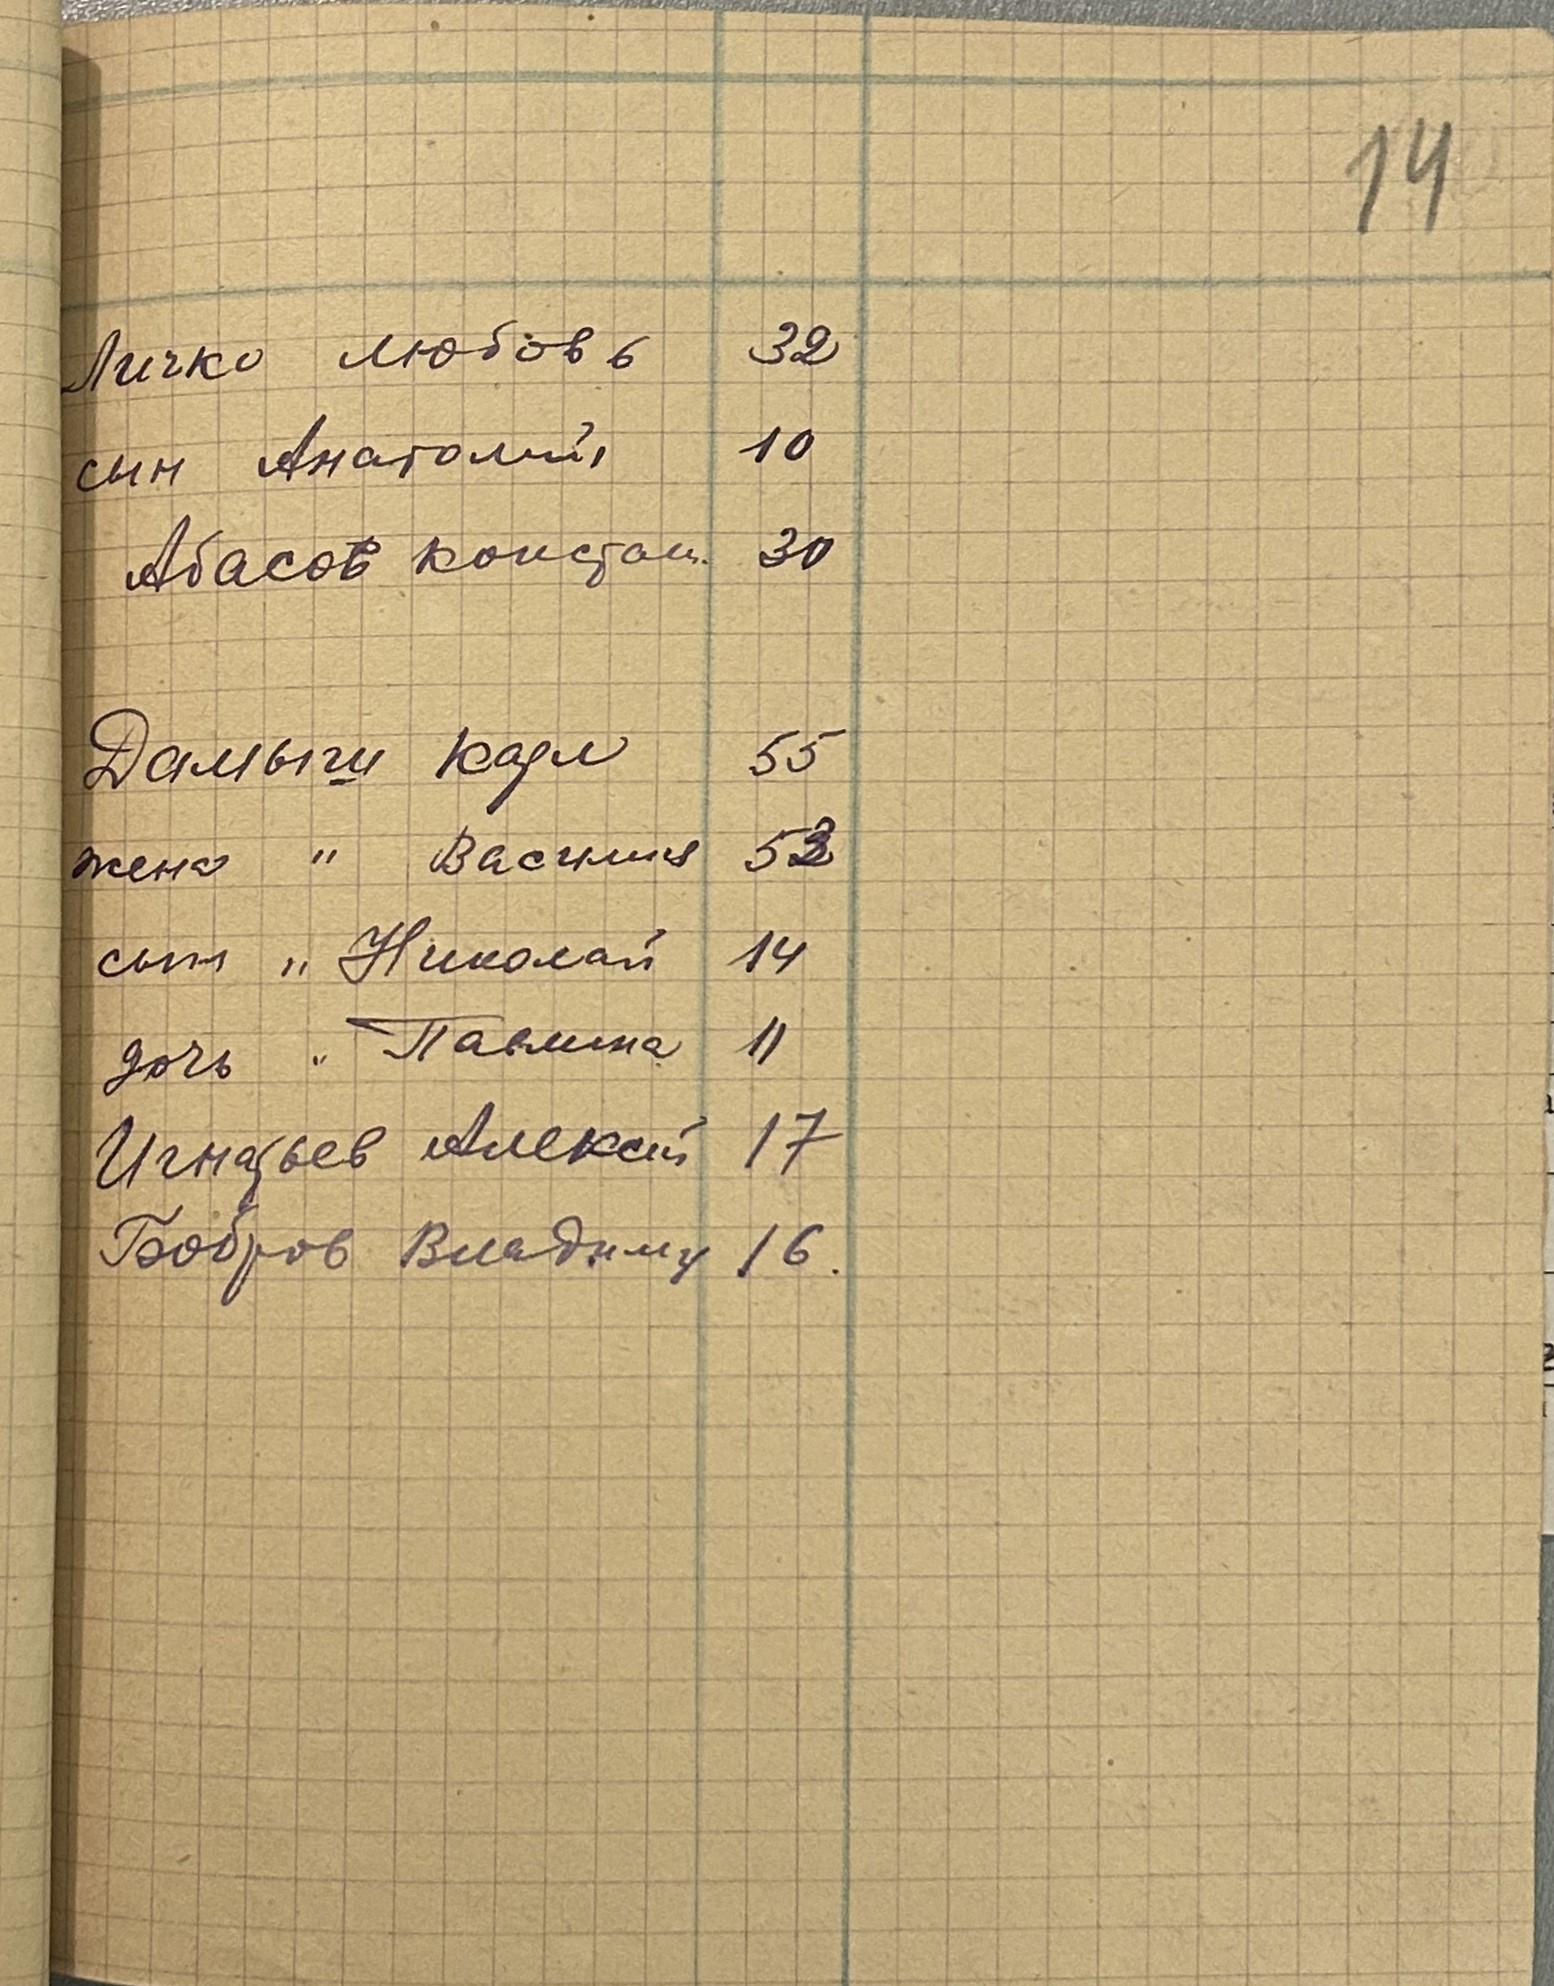 14
Личко Любовь 32
сын Анатолий 10
Абасов Констан. 30
Дамыги Карл 55
жена " 53
сын " Николай 14
дочь " Павлина 11
Игнатьев Алексей 17
Бобров Владимир 16.